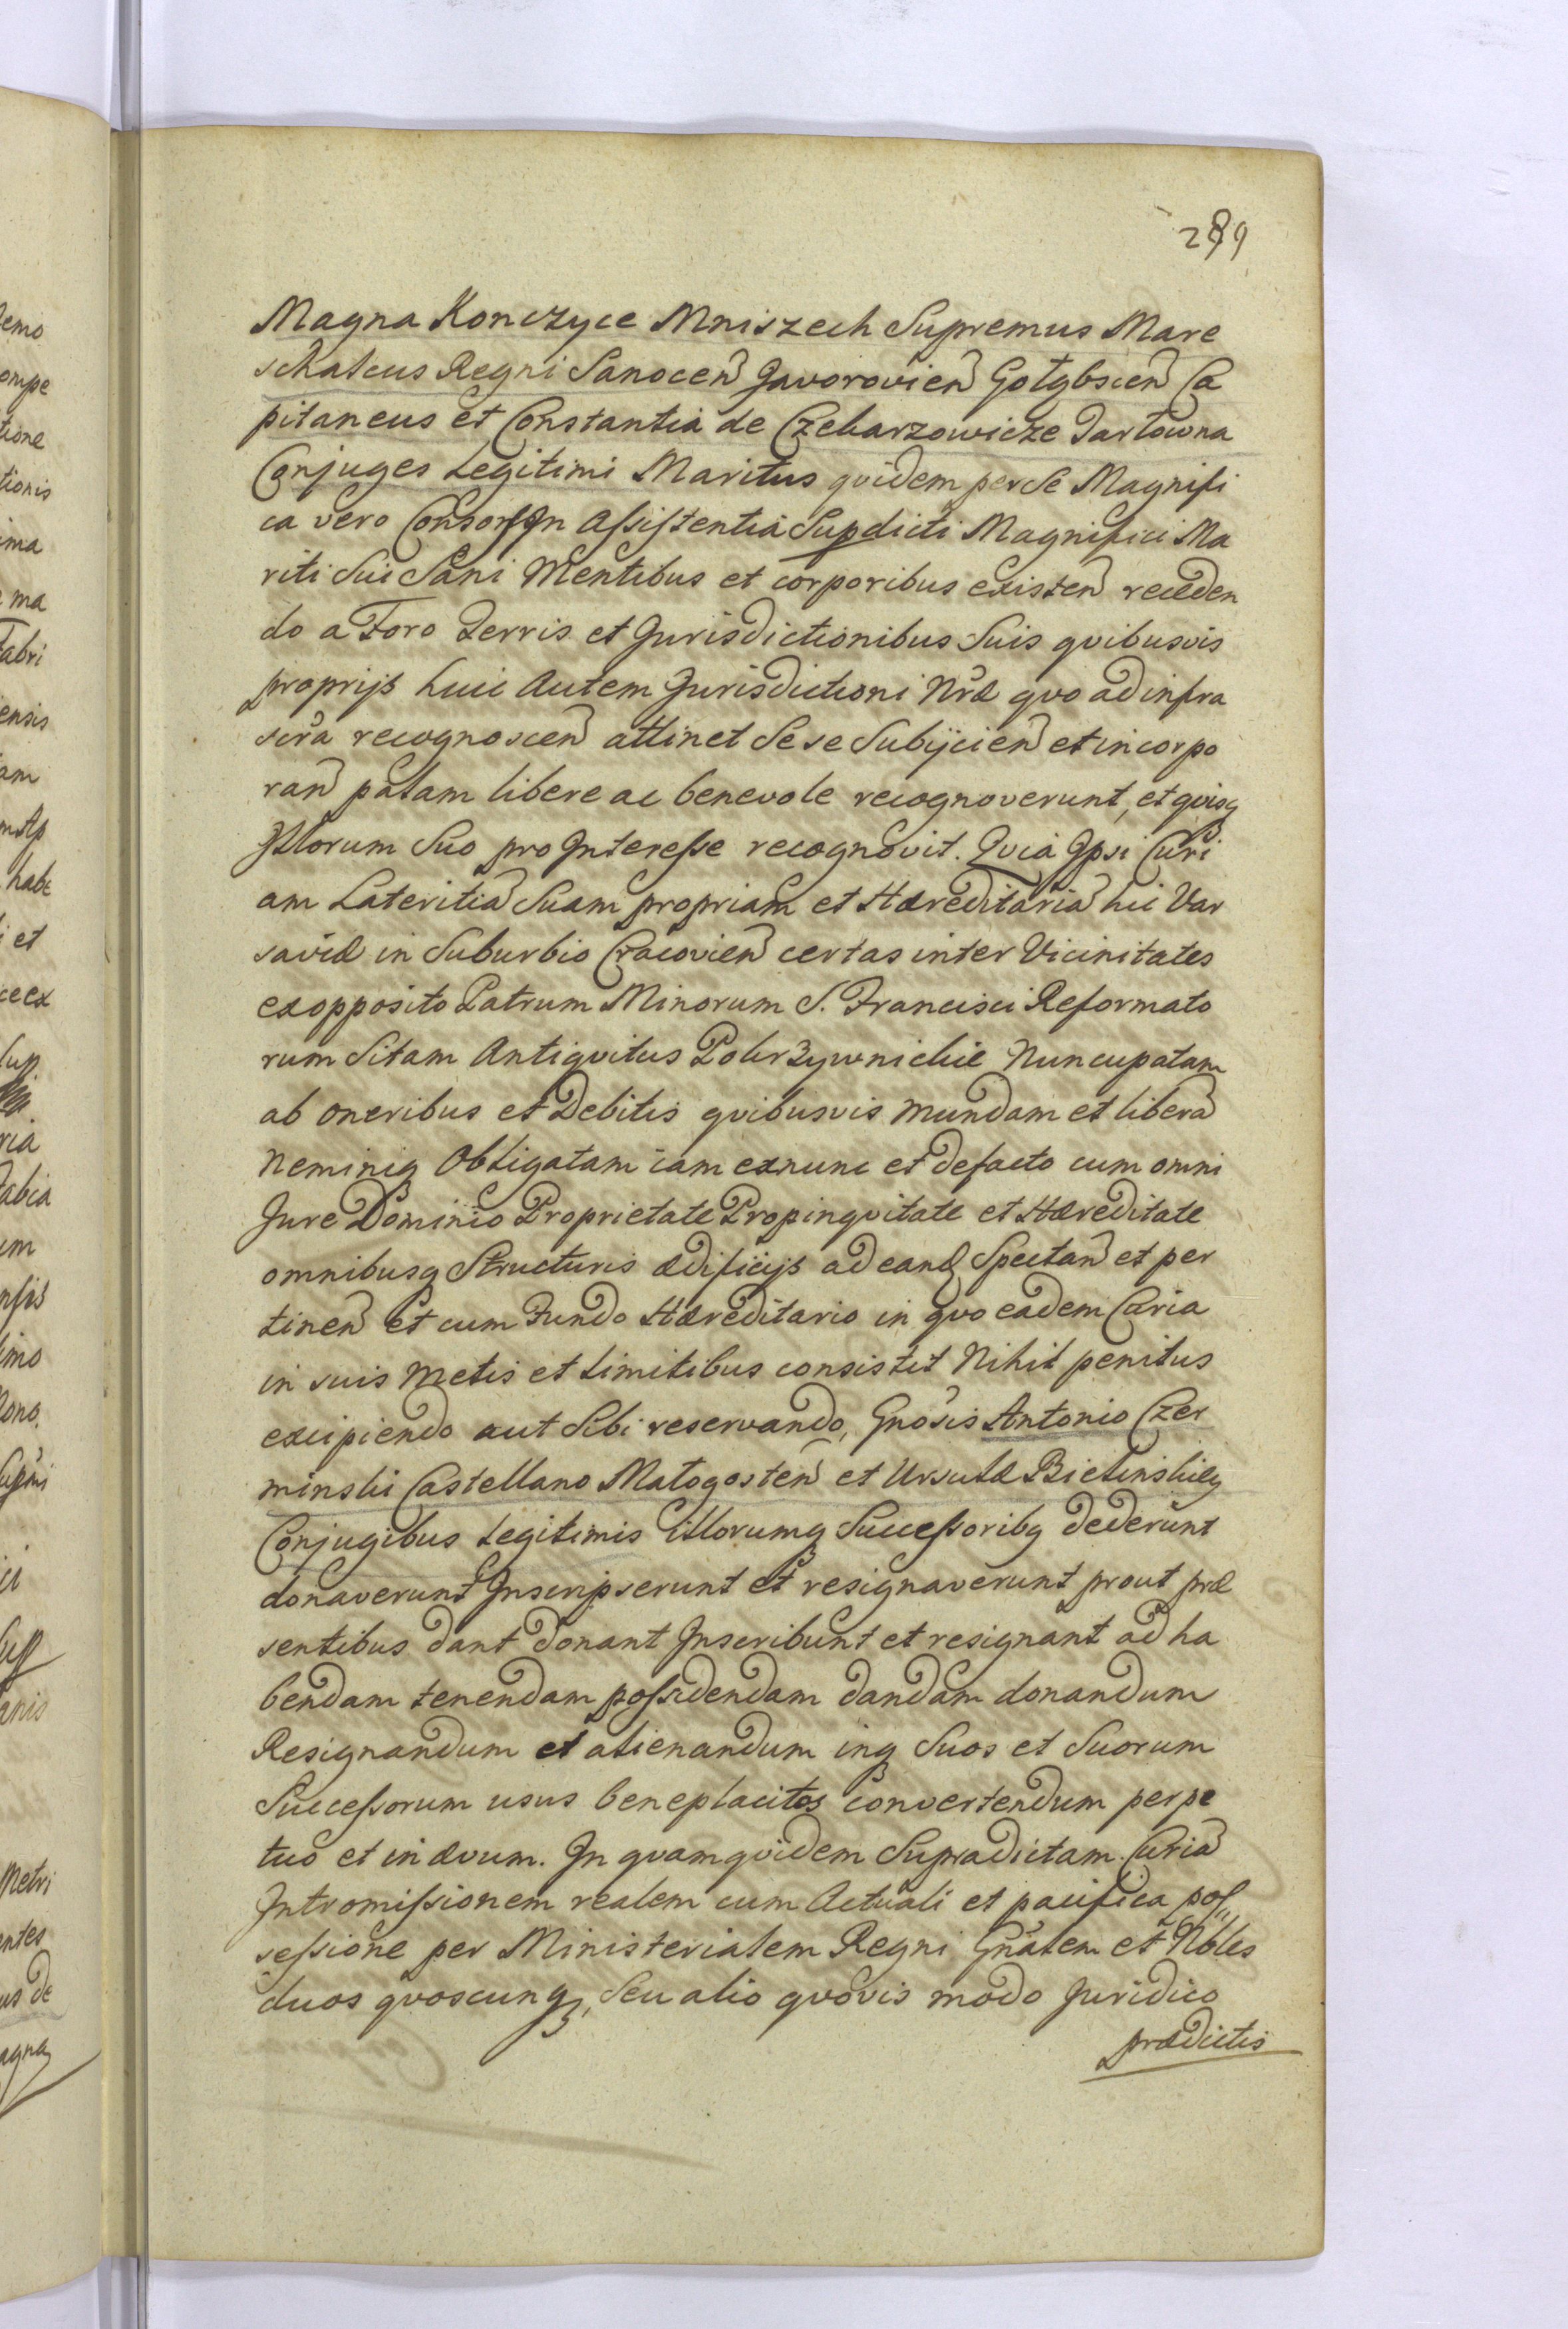 289
Magna Konczyce Mniszech Supremus Mare
schalcus Regni Sanocen̄ Javorovien̄ Gołąbscen̄ Ca
pitaneus et Constantia de Czekarzowicze Tarłowna
Conjuges Legitimi Maritus qvidem per Se Magnifi
ca vero Consors In Assistentia Supdicti Magnifici Ma
riti Sui Sani Mentibus et corporibus existen̄ receden
do a Foro Terris et Jurisdictionibus Suis qvibusvis
proprijs huic Autem Jurisdictioni Nr̄æ qvo ad infra
scr̄a recognoscen̄ attinet Sese Subijcien̄ et incorpo
ran̄ palam libere ac benevole recognoverunt, et qvisq
Illorum Suo pro Interesse recognovit. Qvia Ipsi Curi
am Lateritia̅ Suam propriam et Hæreditaria̅ hic Var
saviæ in Suburbio Cracovien̄ certas inter Vicinitates
ex opposito Patrum Minorum S. Francisci Reformato
rum Sitam Antiqvitus Pokrzywnickie Nuncupatam
ab oneribus et Debitis qvibusvis mundam et libera̅
Neminiq Obligatam iam exnunc et defacto cum omni
Jure Dominio Proprietate Propinqvitate et Hæreditate
omnibusq Structuris ædificijs ad eand Spectan̄ et per
tinen̄ Et cum Fundo Hæreditario in qvo eadem Curia
in suis Metis et Limitibus consistit Nihil penitus
excipiendo aut Sibi reservando, Gnosis Antonio Czer
minski Castellano Małogosten̄ et Ursulæ Bielinskieÿ
Conjugibus Legitimis illorumq Successoribq dederunt
donaverunt Inscripserunt et resignaverunt prout præ
sentibus dant donant Inscribunt et resignant ad ha
bendam tenendam possidendam dandam donandum
Resignandum et alienandum inq Suos et Suorum
Successorum usus beneplacitos convertendum perpe
tuo et in ævum. In qvam qvidem Supradictam Curia̅
Intromissionem realem cum Actuali et pacifica pos„
sessione per Ministerialem Regni Gn̄alem et Nobles
duos qvoscunq, Seu alio qvovis modo Juridico
prædictis